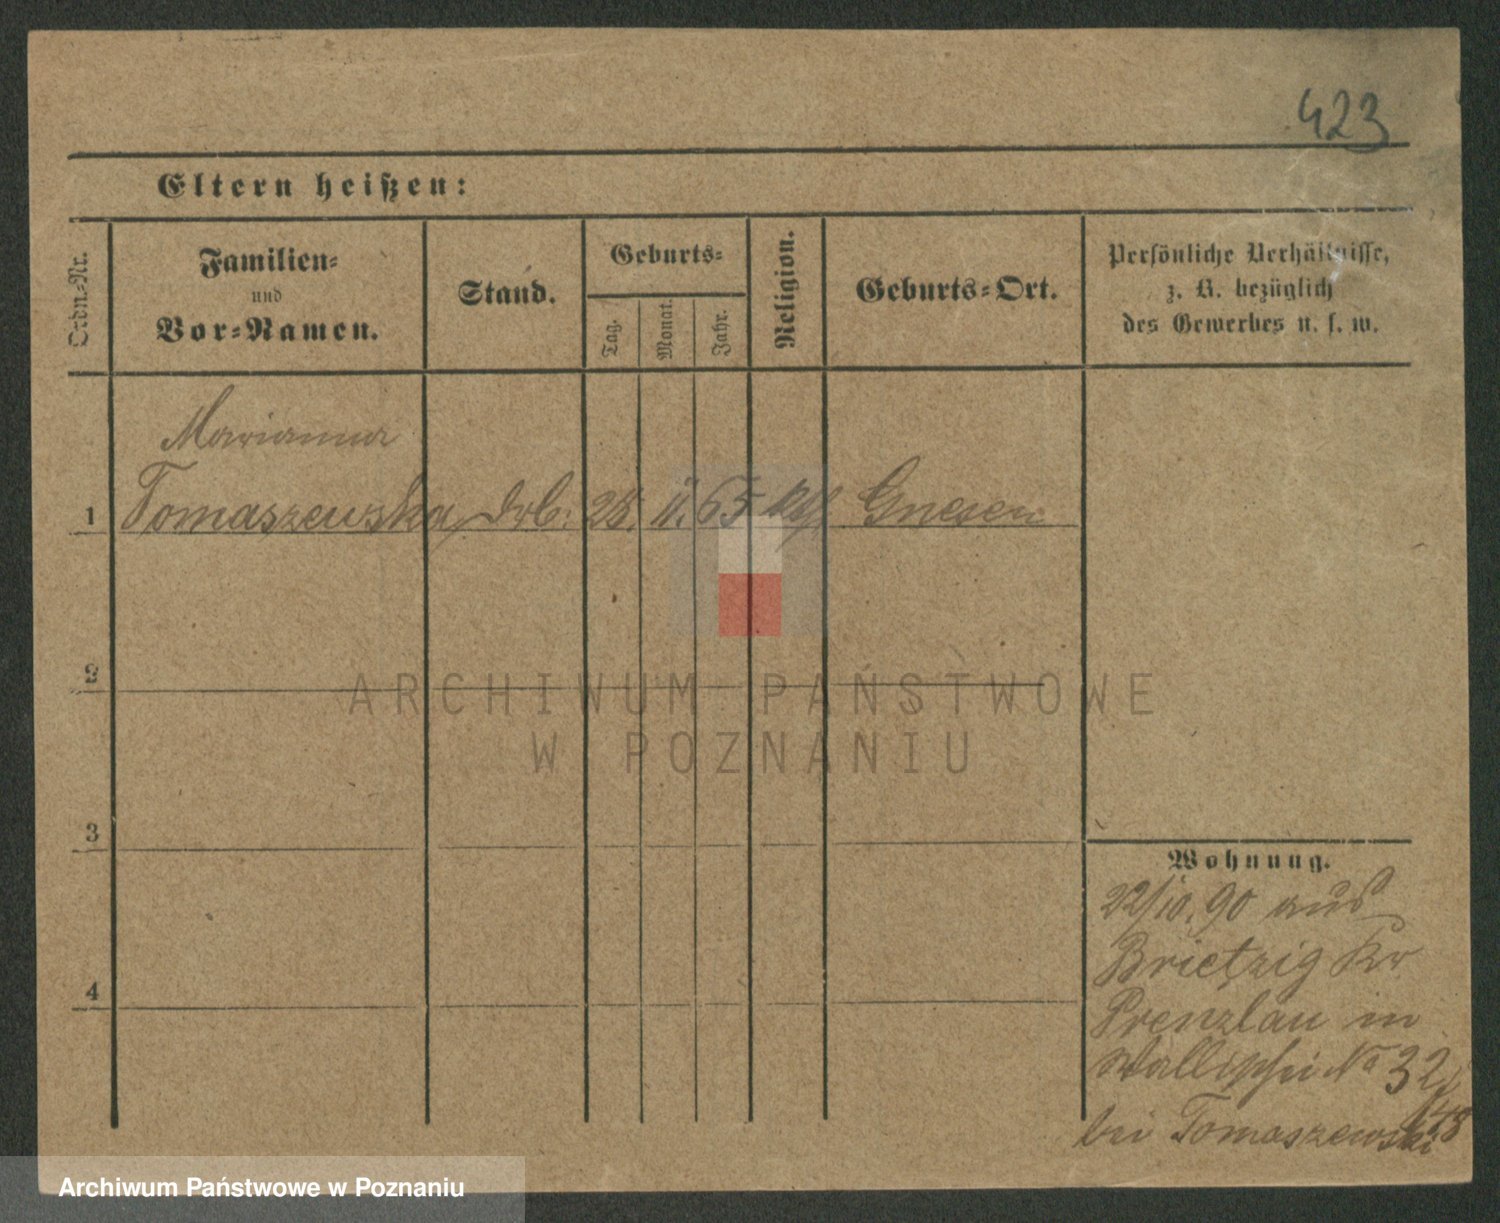 423
Eltern heißen:
Ordn.-Nr.
Familien-
und
Vor-Namen.
Stand.
Geburts-
Tag.
Monat.
Jahr.
Religion.
Geburts-Ort.
Persönliche Verhältnisse,
z. B. bezüglich
des Gewerbes u. s. w.
Marianna
1 Tomaszewska 28. 11. 65 kth Gnesen
2
3
4
Wohnung.
22/10. 90 aus
Brietzig Kr
Prenzlau in
Wallischei No 32
bei Tomaszewski
ARCHIWUM PAŃSTWOWE
W POZNANIU
Archiwum Państwowe w Poznaniu